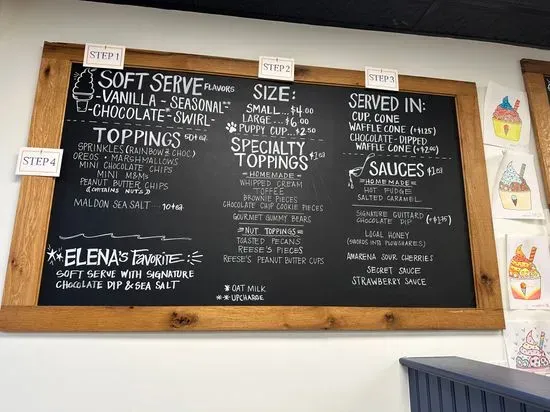 STEP 1
STEP 2
STEP 3
STEP 4
SOFT SERVE FLAVORS
VANILLA - SEASONAL -
- CHOCOLATE - SWIRL -
TOPPINGS 50¢ ea.
SPRINKLES (RAINBOW & CHOC)
OREOS • MARSHMALLOWS
MINI CHOCOLATE CHIPS
MINI M&MS
PEANUT BUTTER CHIPS
(CONTAINS NUTS)
MALDON SEA SALT.....10¢ ea.
*ELENA'S FAVORITE*
SOFT SERVE WITH SIGNATURE
CHOCOLATE DIP & SEA SALT
SIZE:
SMALL...$4.00
LARGE...$6.00
PUPPY CUP...$2.50
SPECIALTY
TOPPINGS $1 ea
=HOMEMADE=
WHIPPED CREAM
TOFFEE
BROWNIE PIECES
CHOCOLATE CHIP COOKIE PIECES
GOURMET GUMMY BEARS
=NUT TOPPINGS=
TOASTED PECANS
REESE'S PIECES
REESE'S PEANUT BUTTER CUPS
* OAT MILK
** UPCHARGE
SERVED IN:
CUP, CONE
WAFFLE CONE (+$1.25)
CHOCOLATE-DIPPED
WAFFLE CONE (+$2.00)
SAUCES $1 ea
=HOMEMADE=
HOT FUDGE
SALTED CARAMEL
SIGNATURE GUITTARD (+$1.75)
CHOCOLATE DIP
LOCAL HONEY
(SWORDS INTO PLOWSHARES)
AMARENA SOUR CHERRIES
SECRET SAUCE
STRAWBERRY SAUCE